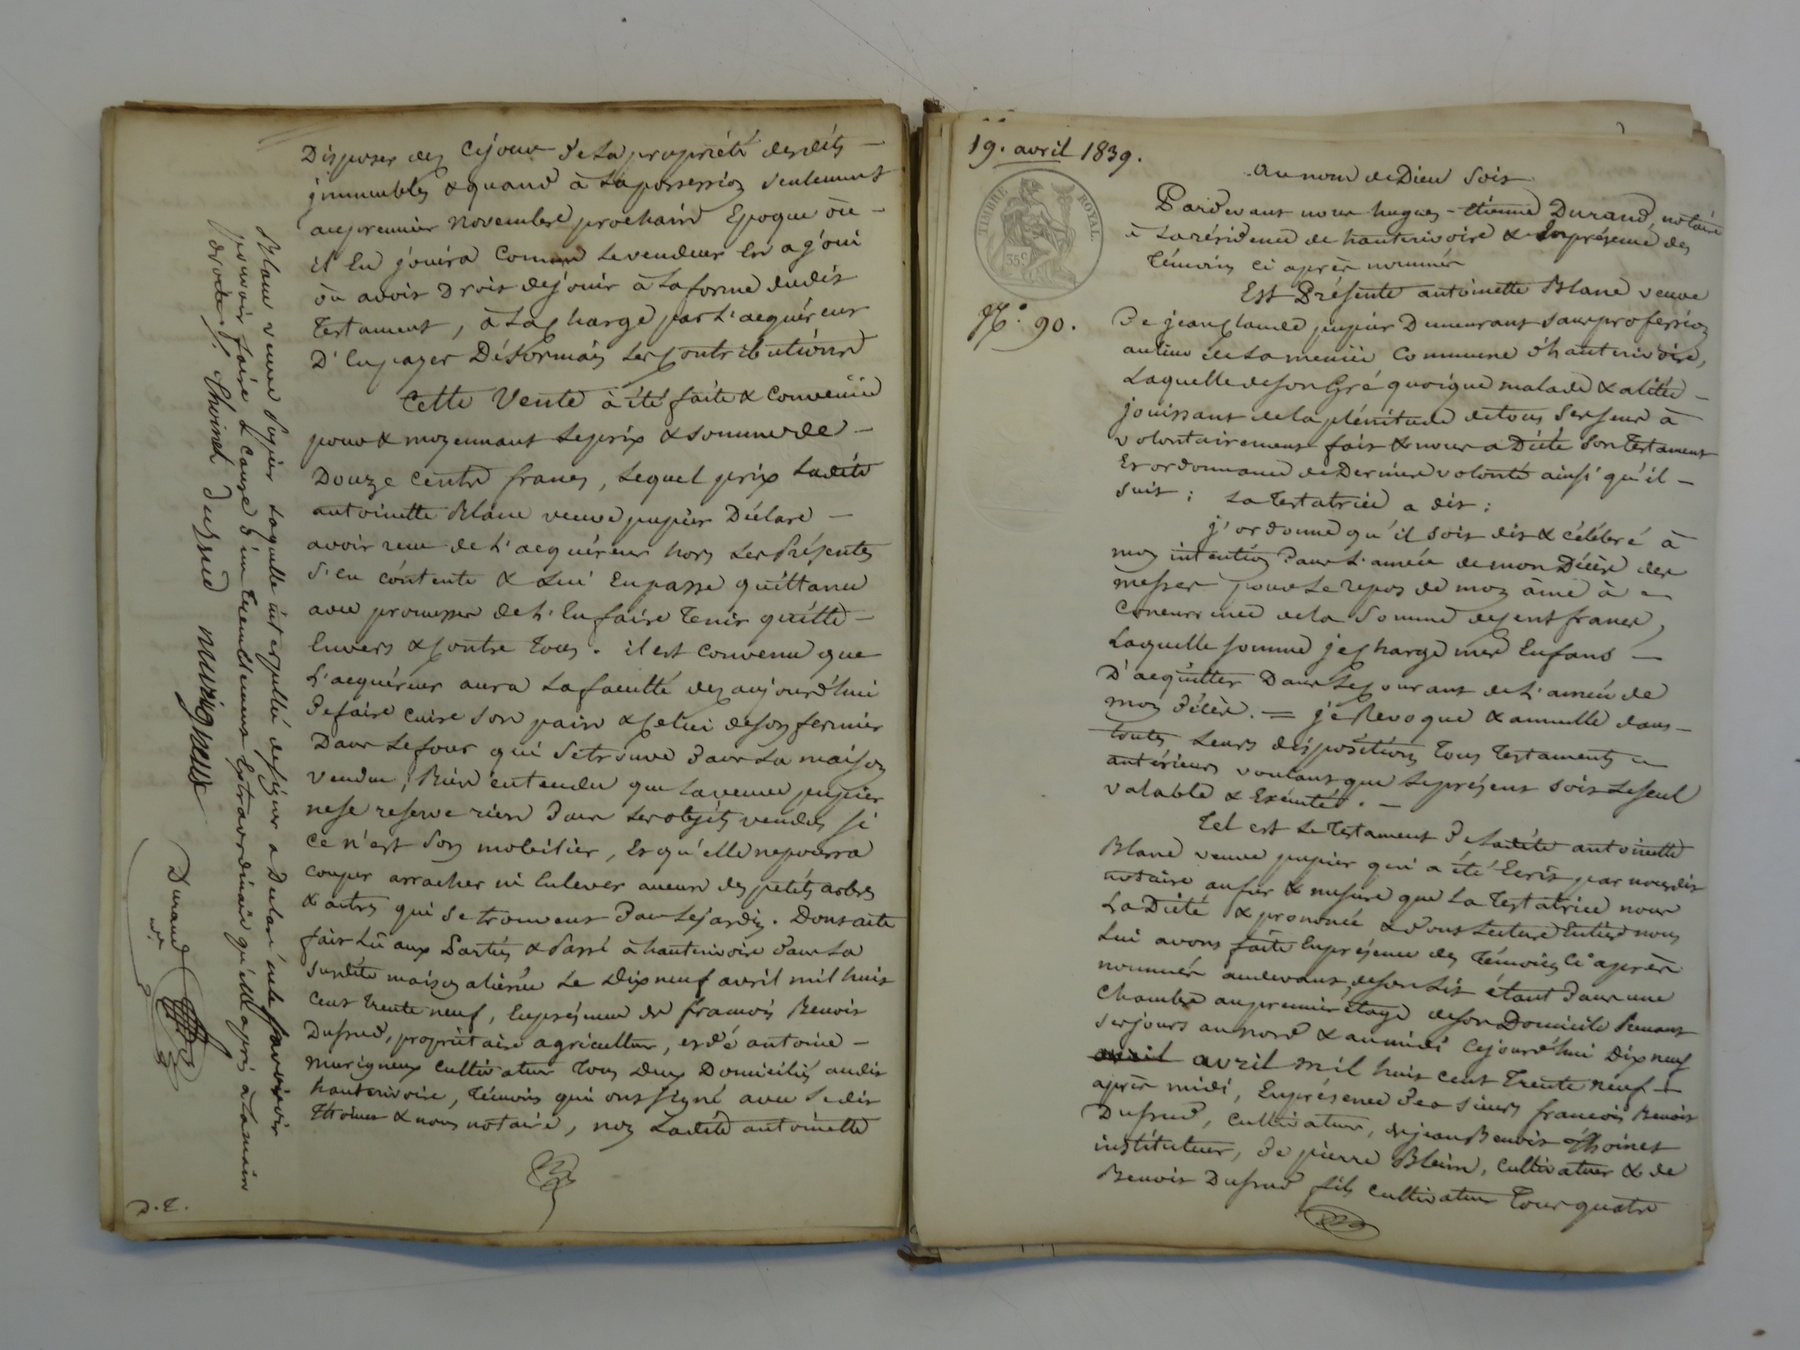 Disposer dez cejour de la propriété desdits —
jmmeubles & quand à la possession seulement
aupremier novembre prochain Epoque ôu —
il En jouira Comme Levendeur En a joui
ôu avoit Droit dejouir à Laforme dudit
Testament, à La charge par L'acquéreur
D'En payer Désormais Les Contributions
Cette Vente à été faite & Convenüe
pour & moyennant Leprix & somme de —
Douze Cents francs, Lequel prix Ladite
antoinette Blanc veuve pupier Déclare —
avoir reçu de L'acquéreur hors Les Présentes
s'en contente & Lui En passe quittance
avec promesse de L'En faire Tenir quitte —
Envers & Contre Tous. il est Convenu que
L'acquéreur aura La faculté dez aujourd'hui
De faire cuire Son pain & Celui deson fermier
Dans Le four qui Setrouve Dans La maison
Vendue; Bien entendu que La veuve pupier
nese reserve rien Dans Les objets vendus si
Ce n'est Son mobilier, Et qu'elle nepourra
Couper arracher ni Enlever aucun des petits arbres
& autres qui Se trouvent Dans Lejardin. Dont acte
fait Lû aux Parties & Passé à hauterivoire Dans La
Susdite maison aliénée Le Dix neuf avril mil huit
Cent Trente neuf, Enprésence de francois Benoit
Dufrud, propriétaire agriculteur, et de antoine —
murigneux Cultivateur Tous Deux Domiciliés audit
hauterivoire, Témoins qui ont signé avec Ledit
Thoinet & nous notaire, non Ladite antoinette
Blanc veuve Pupier Laquelle interpellée designer a Déclaré nele savoir ni
pouvoir faire à Cause d'un tremblement Extraordinaire qu'elle a pris à la main
droite /. Thoinet Dufrud murigneux
Durand
nre
D.E.
19. avril 1839.
TIMBRE ROYAL.
35c
No. 90.
Au nom de Dieu Soit
Pardevant nous hugues-étienne Durand, notaire
à La résidence de hauterivoire & En présence des
Témoins Ci après nommés
Est Présente antoinette Blanc veuve
De jean Claude pupier Demeurant Sans profession
au lieu de La menüe Commune d'hauterivoire,
Laquelle de son Gré quoique malade & alitée —
jouissant de la plénitude detous Ses sens à
volontairement fait & nous a Dicté Son Testament
Et ordonnance de Derniere volonté ainsi qu'il —
Suit: La Testatrice a dit:
j'ordonne qu'il soit dit & célébré à
mon intention Dans L'année de mon Décès des
messes pour Le repos de mon âme à —
Concurrence de la Somme de Cent francs,
Laquelle Somme je Charge mes Enfans —
D'acquitter Dans Le Courant de L'année de
mon Décès. = je Revoque & annulle dans —
toutes Leurs dispositions Tous Testaments —
antérieurs voulant que Leprésent soit Leseul
valable & Exécuté. —
Tel est Le Testament De Ladite antoinette
Blanc veuve pupier qui a été Ecrit par nousdit
notaire au fur & mesure que La Testatrice nous
La Dicté & prononcé & Dont Lecture Entiere nous
Lui avons faite Enprésence des Témoins Ci après
nommés au devant de son Lit étant Dans une
Chambre au premier étage de son Domicile Prenant
Ses jours au nord & au midi Cejourd'hui Dix neuf
avril mil huit Cent Trente neuf —
après midi, Enprésence De s Sieurs francois Benoit
Dufrud, Cultivateur, de jean Benoit Thoinet
instituteur, De pierre Blein, Cultivateur & de
Benoit Dufrud fils Cultivateur Tous quatre